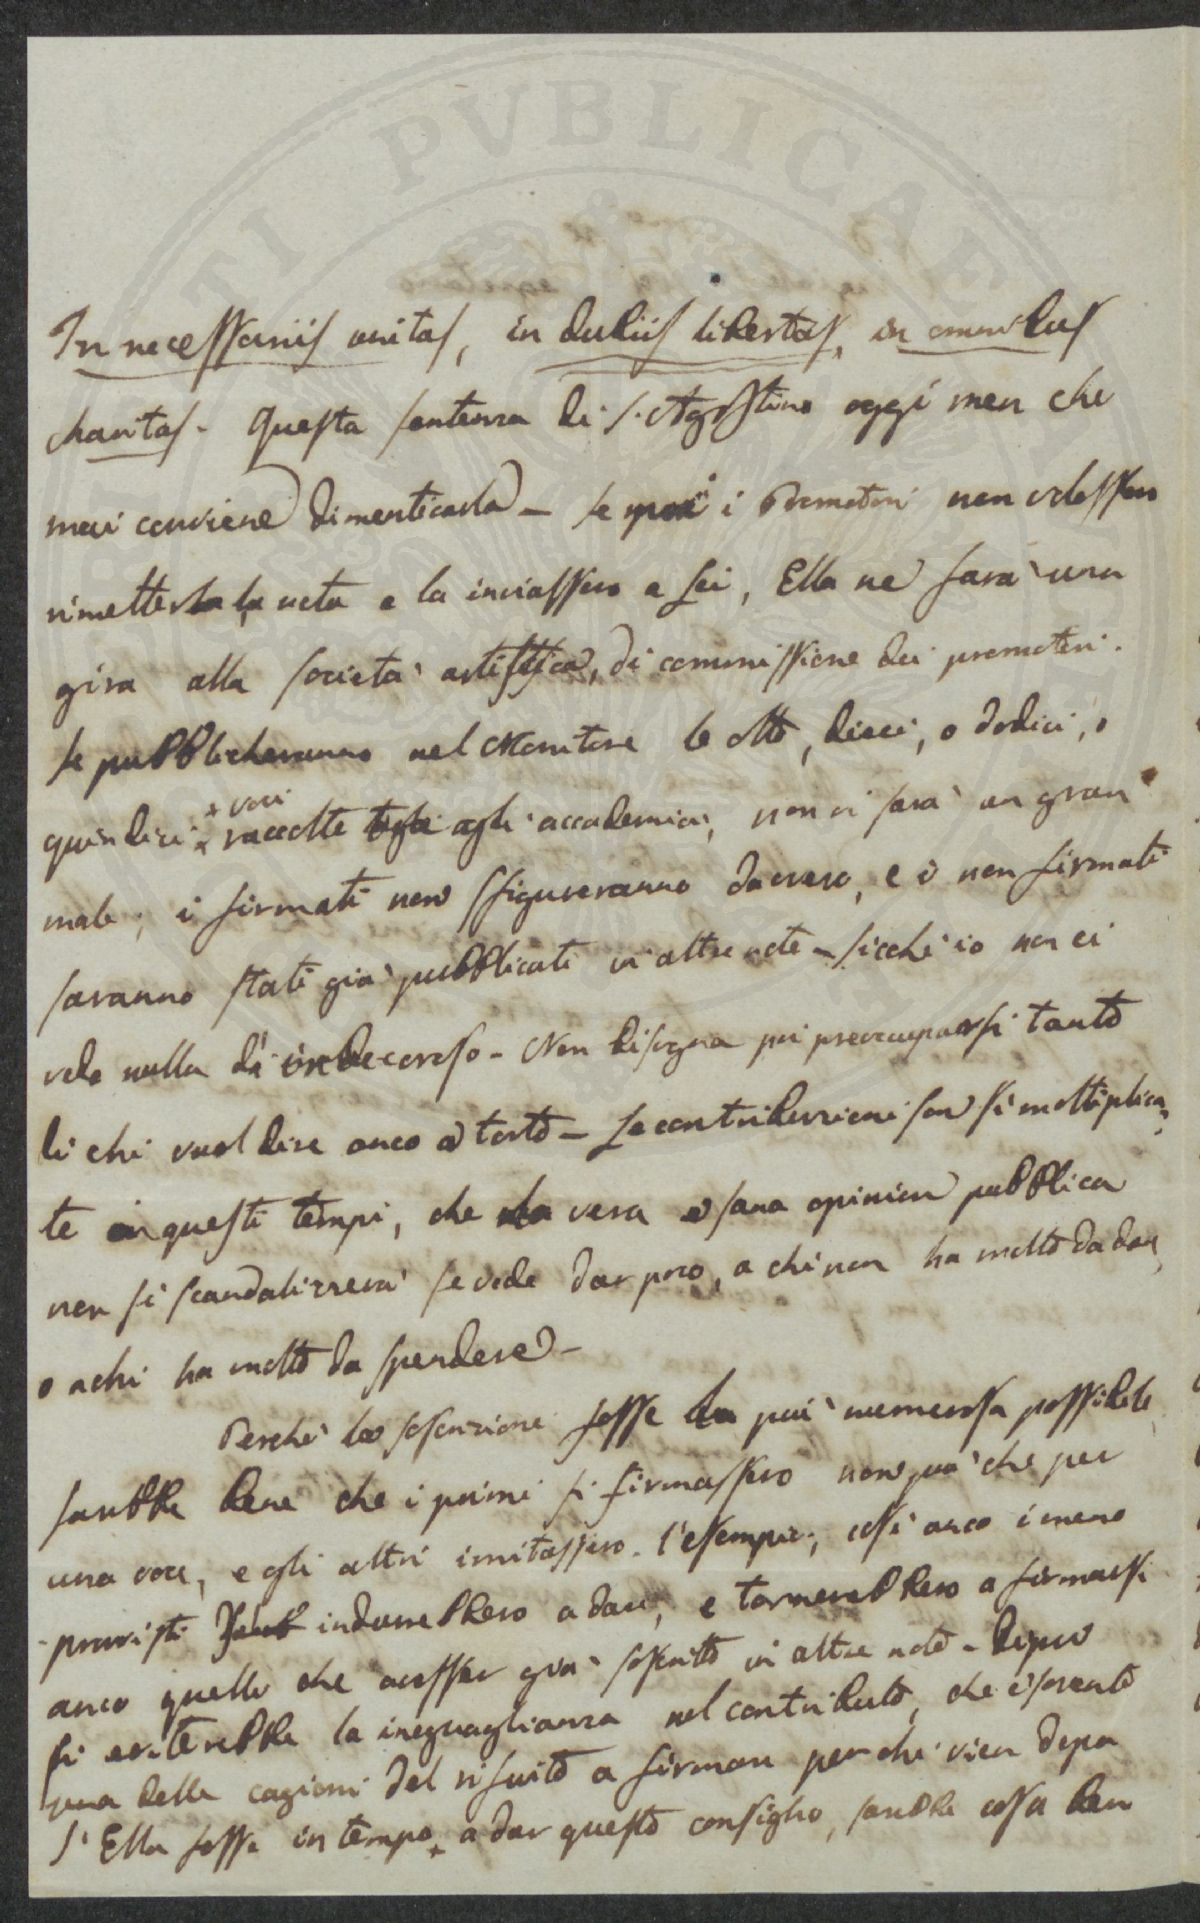 In necessariis unitas, in dubiis libertas, in omnibus
charitas. Questa sentenza di S. Agostino oggi men che
mai conviene dimenticarla – Se poi i Promotori non volessero
rimetterla la nota e la inviassero a Lei, Ella ne farà una
gira alla società artistica, di commissione dei promotori.
Se pubblicheranno nel Monitore le otto, dieci, o dodici, o
quindici voci raccolte agli accademici, non vi sarà un gran
male; i firmati non sfigureranno davvero, e i non firmati
saranno stati già pubblicati in altre note – sicché io non ci
vedo nulla di indecoroso – Non bisogna poi preoccuparsi tanto
di chi vuol dire anco a torto – Le contribuzioni son sì moltiplica
te in questi tempi, che la vera e sana opinion pubblica
non si scandalizzerà se vede dar poco, a chi non ha molto da dare,
o a chi ha molto da spendere –
Perché la soscrizione fosse la più numerosa possibile
sarebbe bene che i primi si firmassero non più che per
una voce, e gli altri imitassero l'esempio; così anco i meno
provvisti indurrebbero a dare, e tornerebbero a firmarsi
anco quelli che avesser già soscritto in altre note – Di più
si eviterebbe la ineguaglianza nel contributo, che è sovente
una delle cagioni del rifiuto a firmare per chi vien dopo
S' Ella fosse in tempo a dar questo consiglio, sarebbe cosa ben